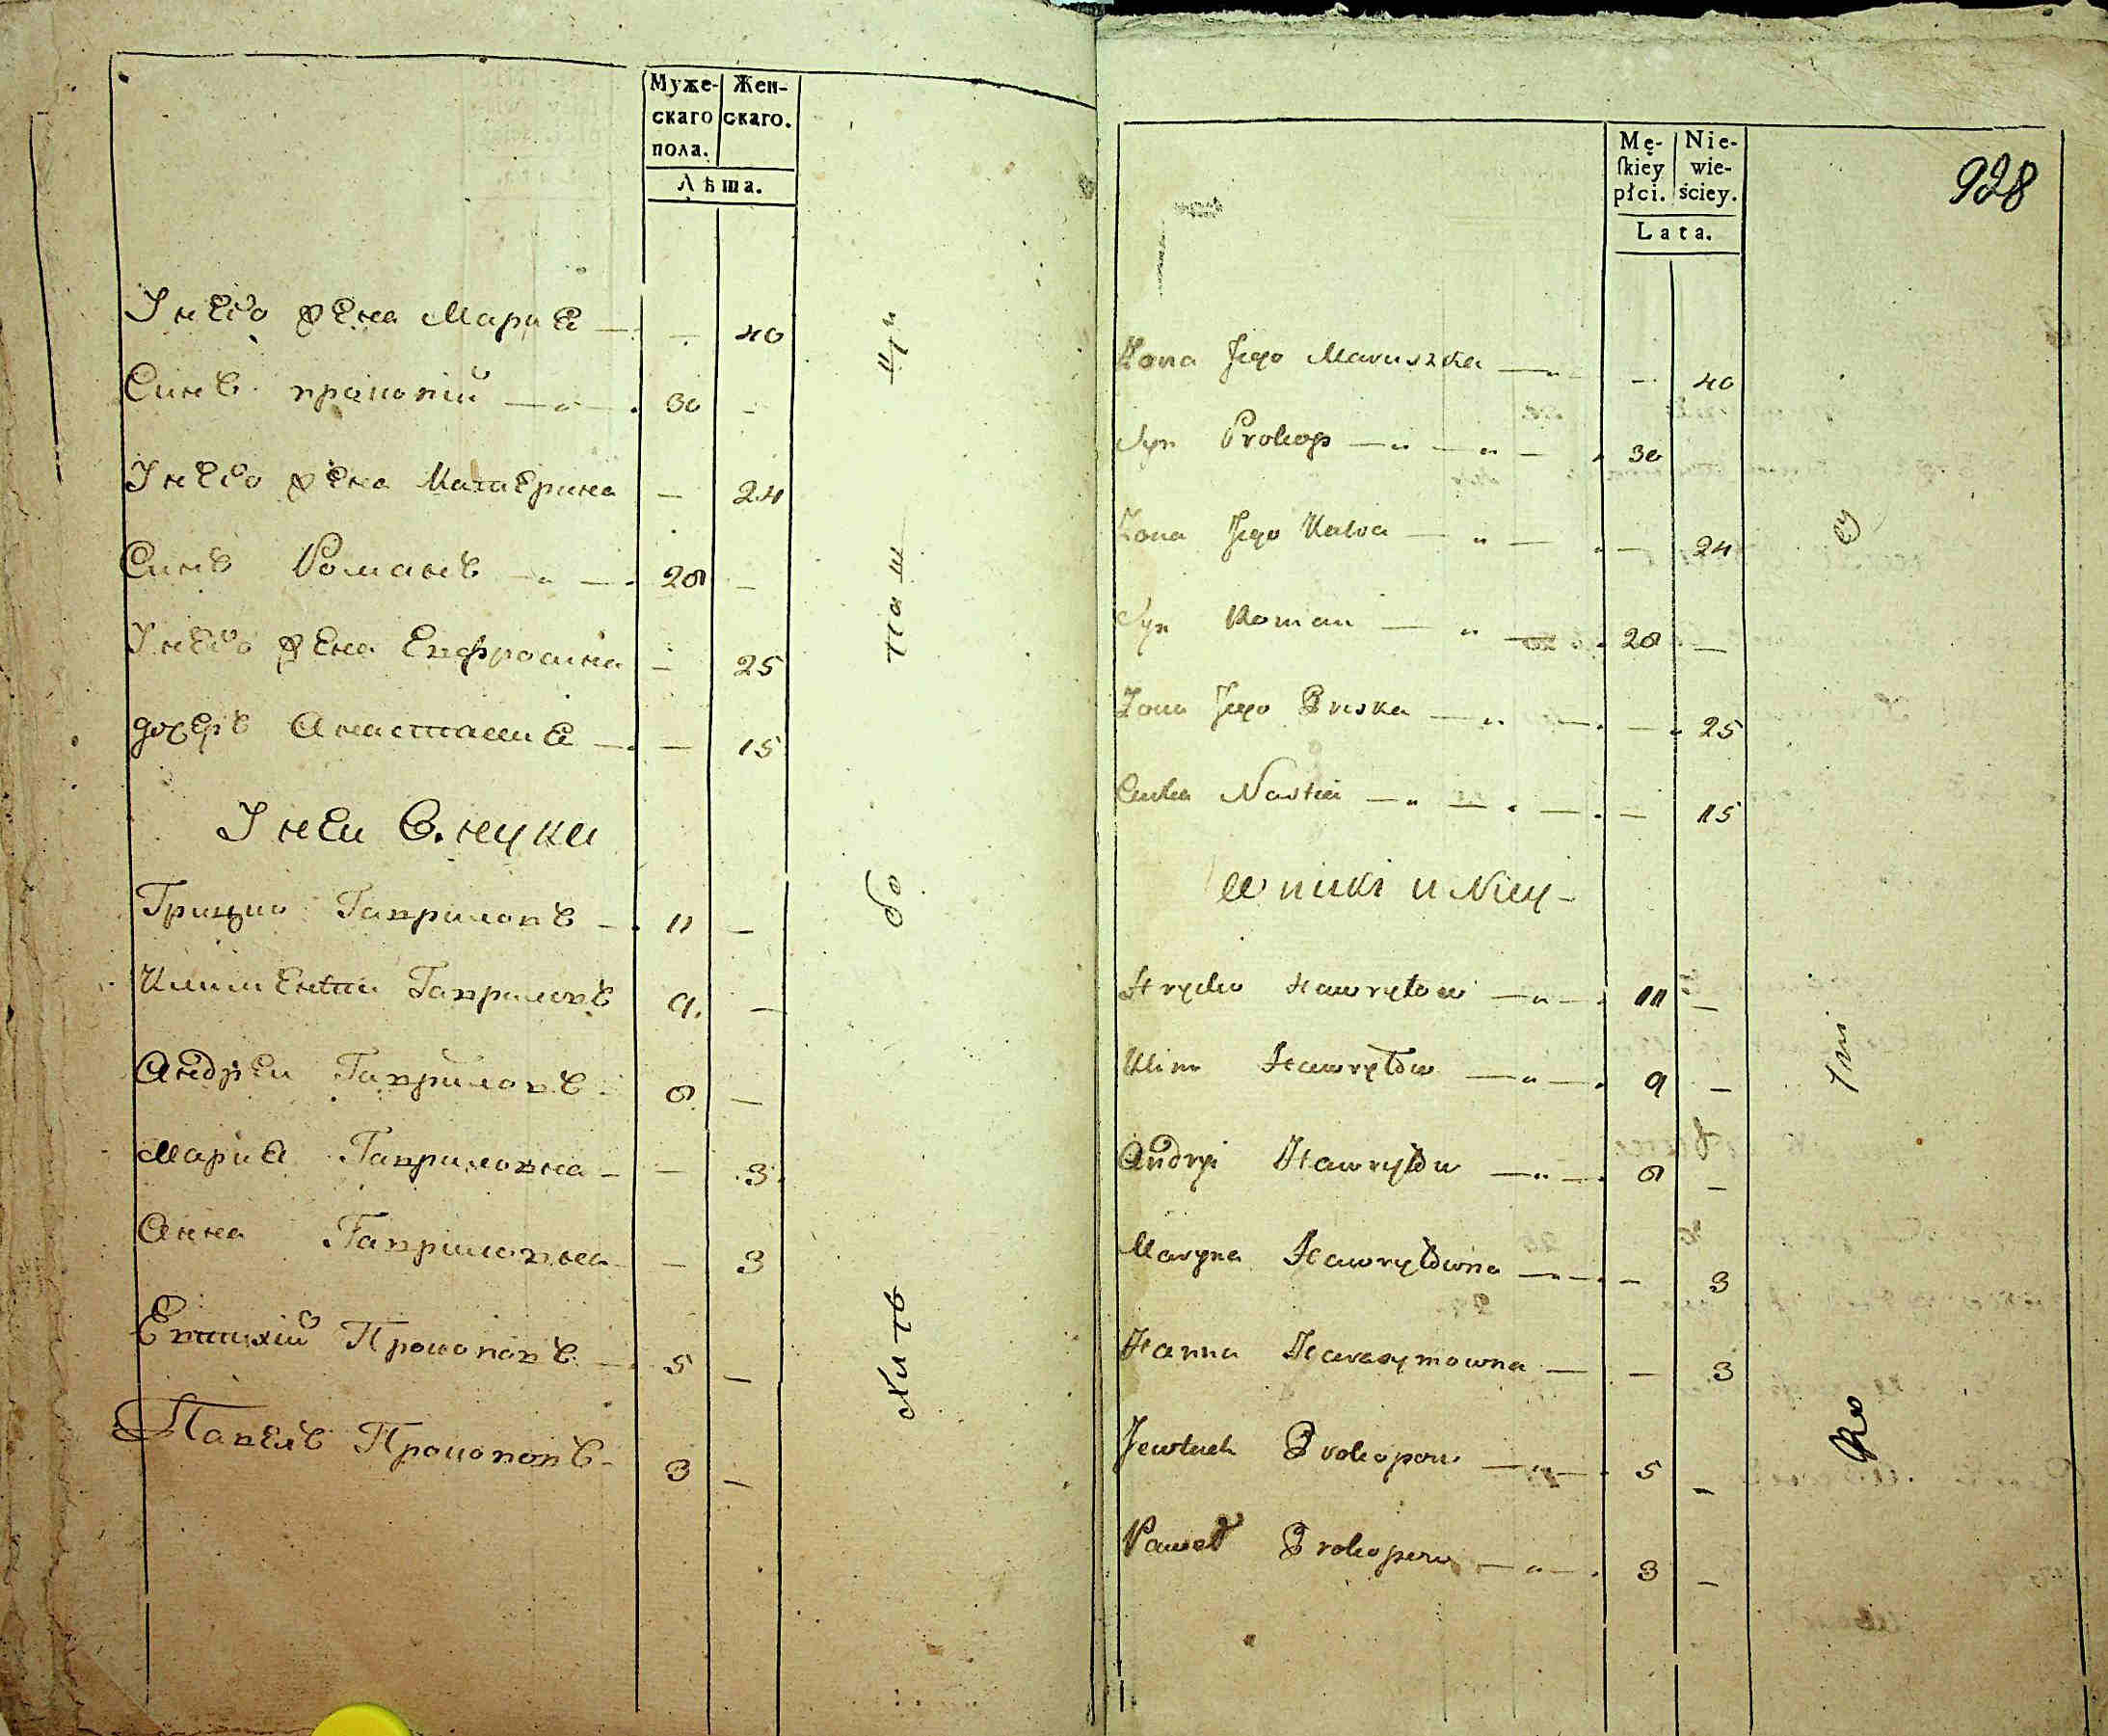 Муже-
скаго
пола.
Жен-
скаго.
Лѣта.
У него жена Мариа 40
Синъ прокопій 30
У него жена Катерина 24
Синъ Романъ 28
У него жена Евфросина 25
дочеръ Анастасиа 15
У неи внуки
Грицко Гавриловъ 11
Климентии Гавриловъ 9.
Андреи Гавриловъ 8
Мариа Гавриловна 3
Анна Гавриловна 3
Евтихій Прокоповъ 5
Павелъ Прокоповъ 3
Mę-
ſkiey
płci.
Nie-
wie-
ściey.
Lata.
928
Zona Jego Maruszka 40
Syn Prokop 30
Zona Jego Katra 24
Syn Roman 28
Zona Jego Pruska 25
Curka Nastia 15
Wnuki u Niey
Hrycko Hawryłow 11
Klim Hawryłow 9
Andryi Hawryłow 8
Maryna Hawryłowna 3
Hanna Harasymowna 3
Jewtuch Prokopow 5
Paweł Prokopow 3